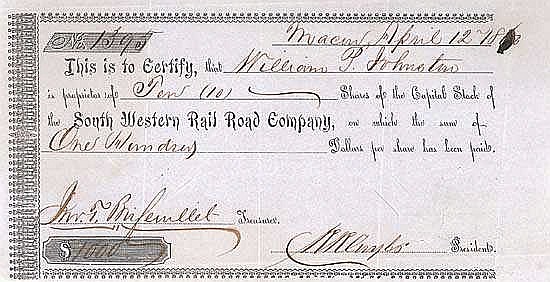 No. 1395 Macon, April 12 18
This is to Certify, that William P. Johnston
is proprietor of Ten (10) Shares of the Capital Stock of
the South Western Rail Road Company, on which the sum of
One Hundred Dollars per share has been paid.
Jno. T. Boifeuillet Treasurer.
$1000 President.